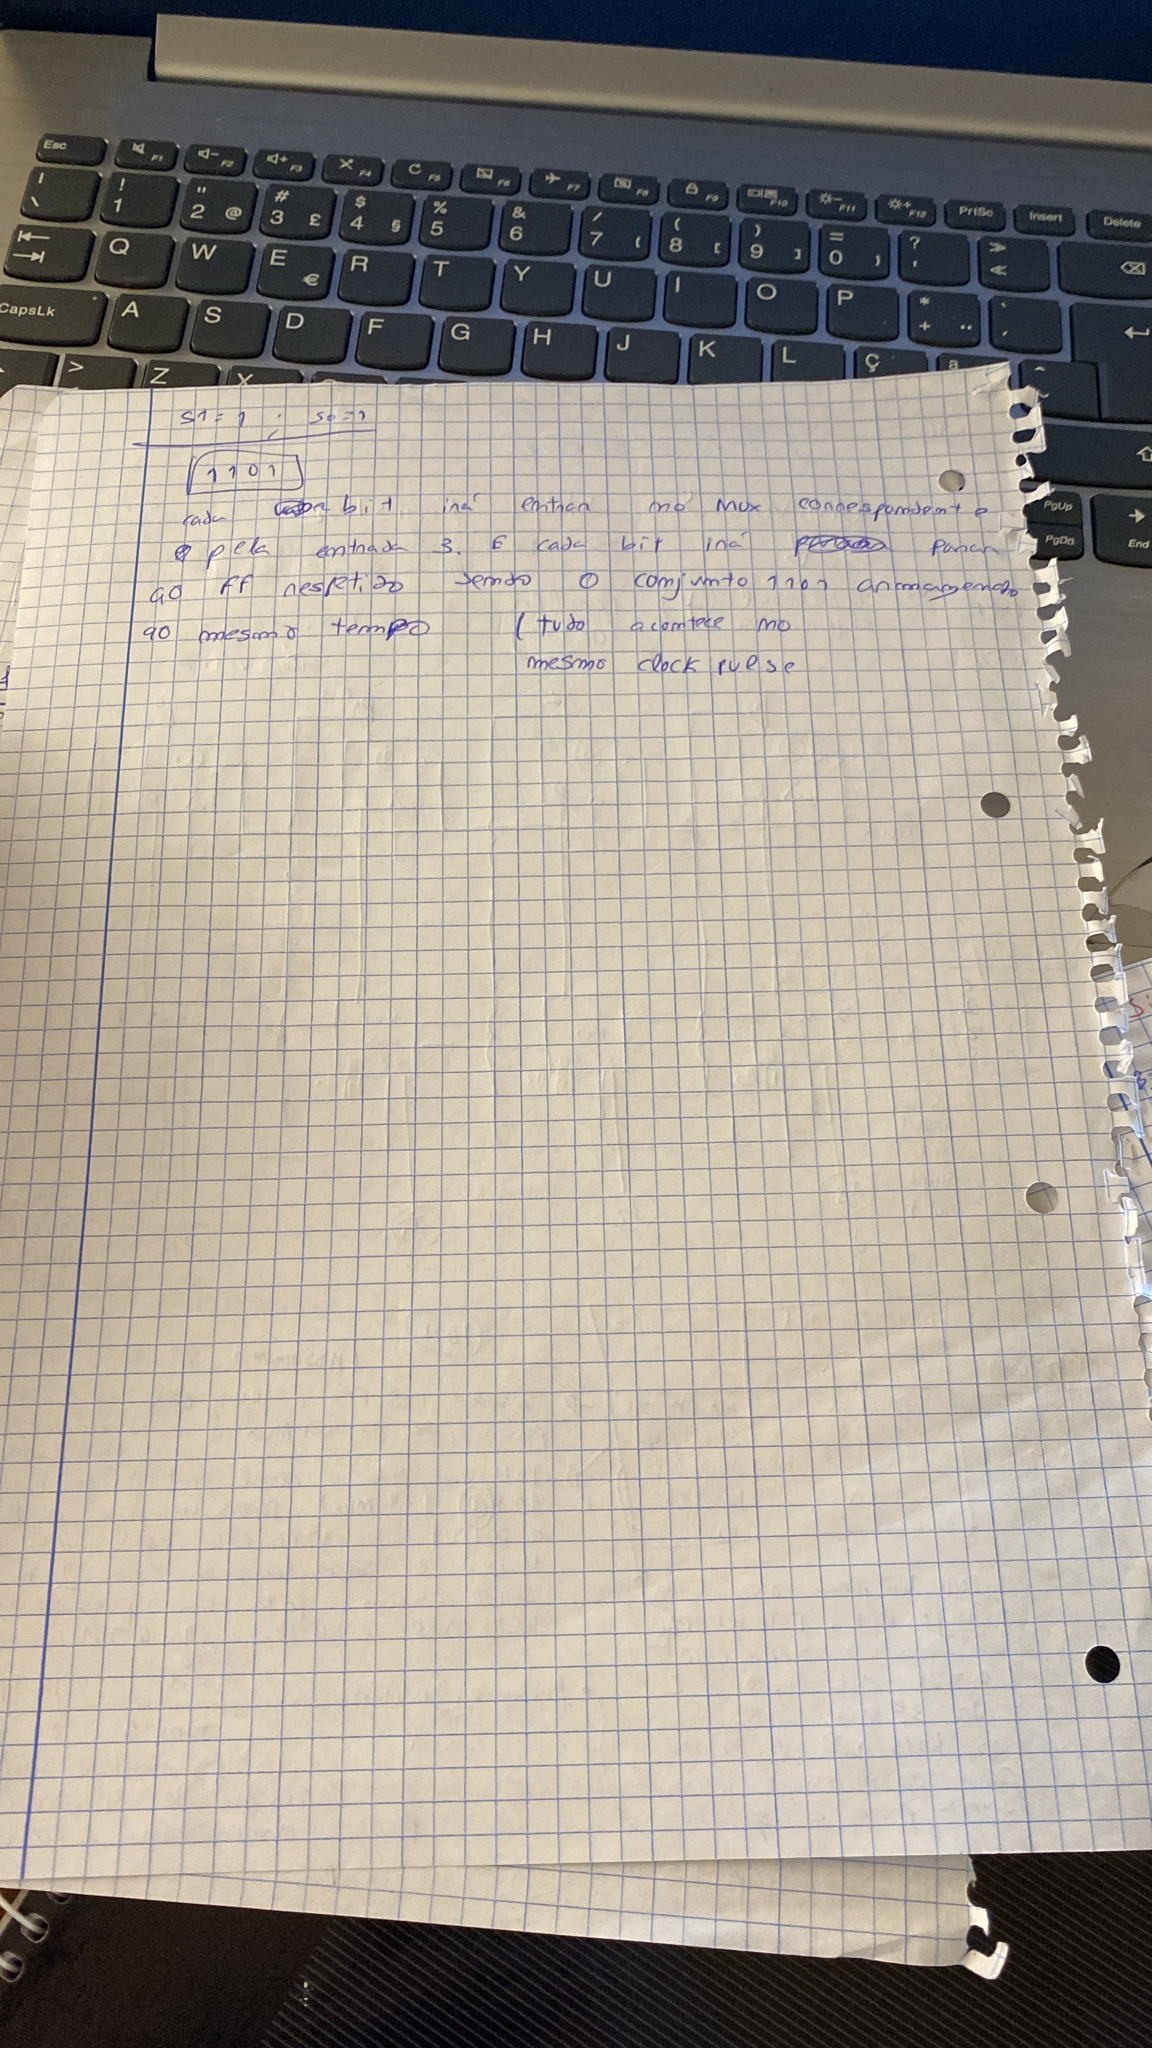 Esc F1 F2 F3 F4 F5 F6 F7 F8 F9 F10 F11 F12 PrtSc Insert Delete
! 1 " 2 @ # 3 £ $ 4 § % 5 & 6 / 7 { ( 8 [ ) 9 ] = 0 } ? ' » «
Q W E € R T Y U I O P * + ¨ ` ´
CapsLk A S D F G H J K L Ç ª º
> Z X
PgUp
PgDn End
S1 = 1 ; S0 = 1
1101
cada bit irá entrar no mux correspondente
pela entrada 3. E cada bit irá parar
ao FF respetivo sendo o conjunto 1101 armazenado
ao mesmo tempo (tudo acontece no
mesmo clock pulse